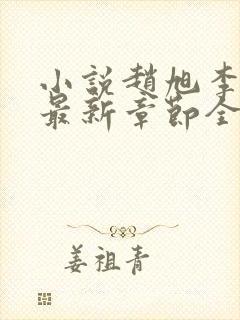 小説趙旭李
最新章節全
姜祖青